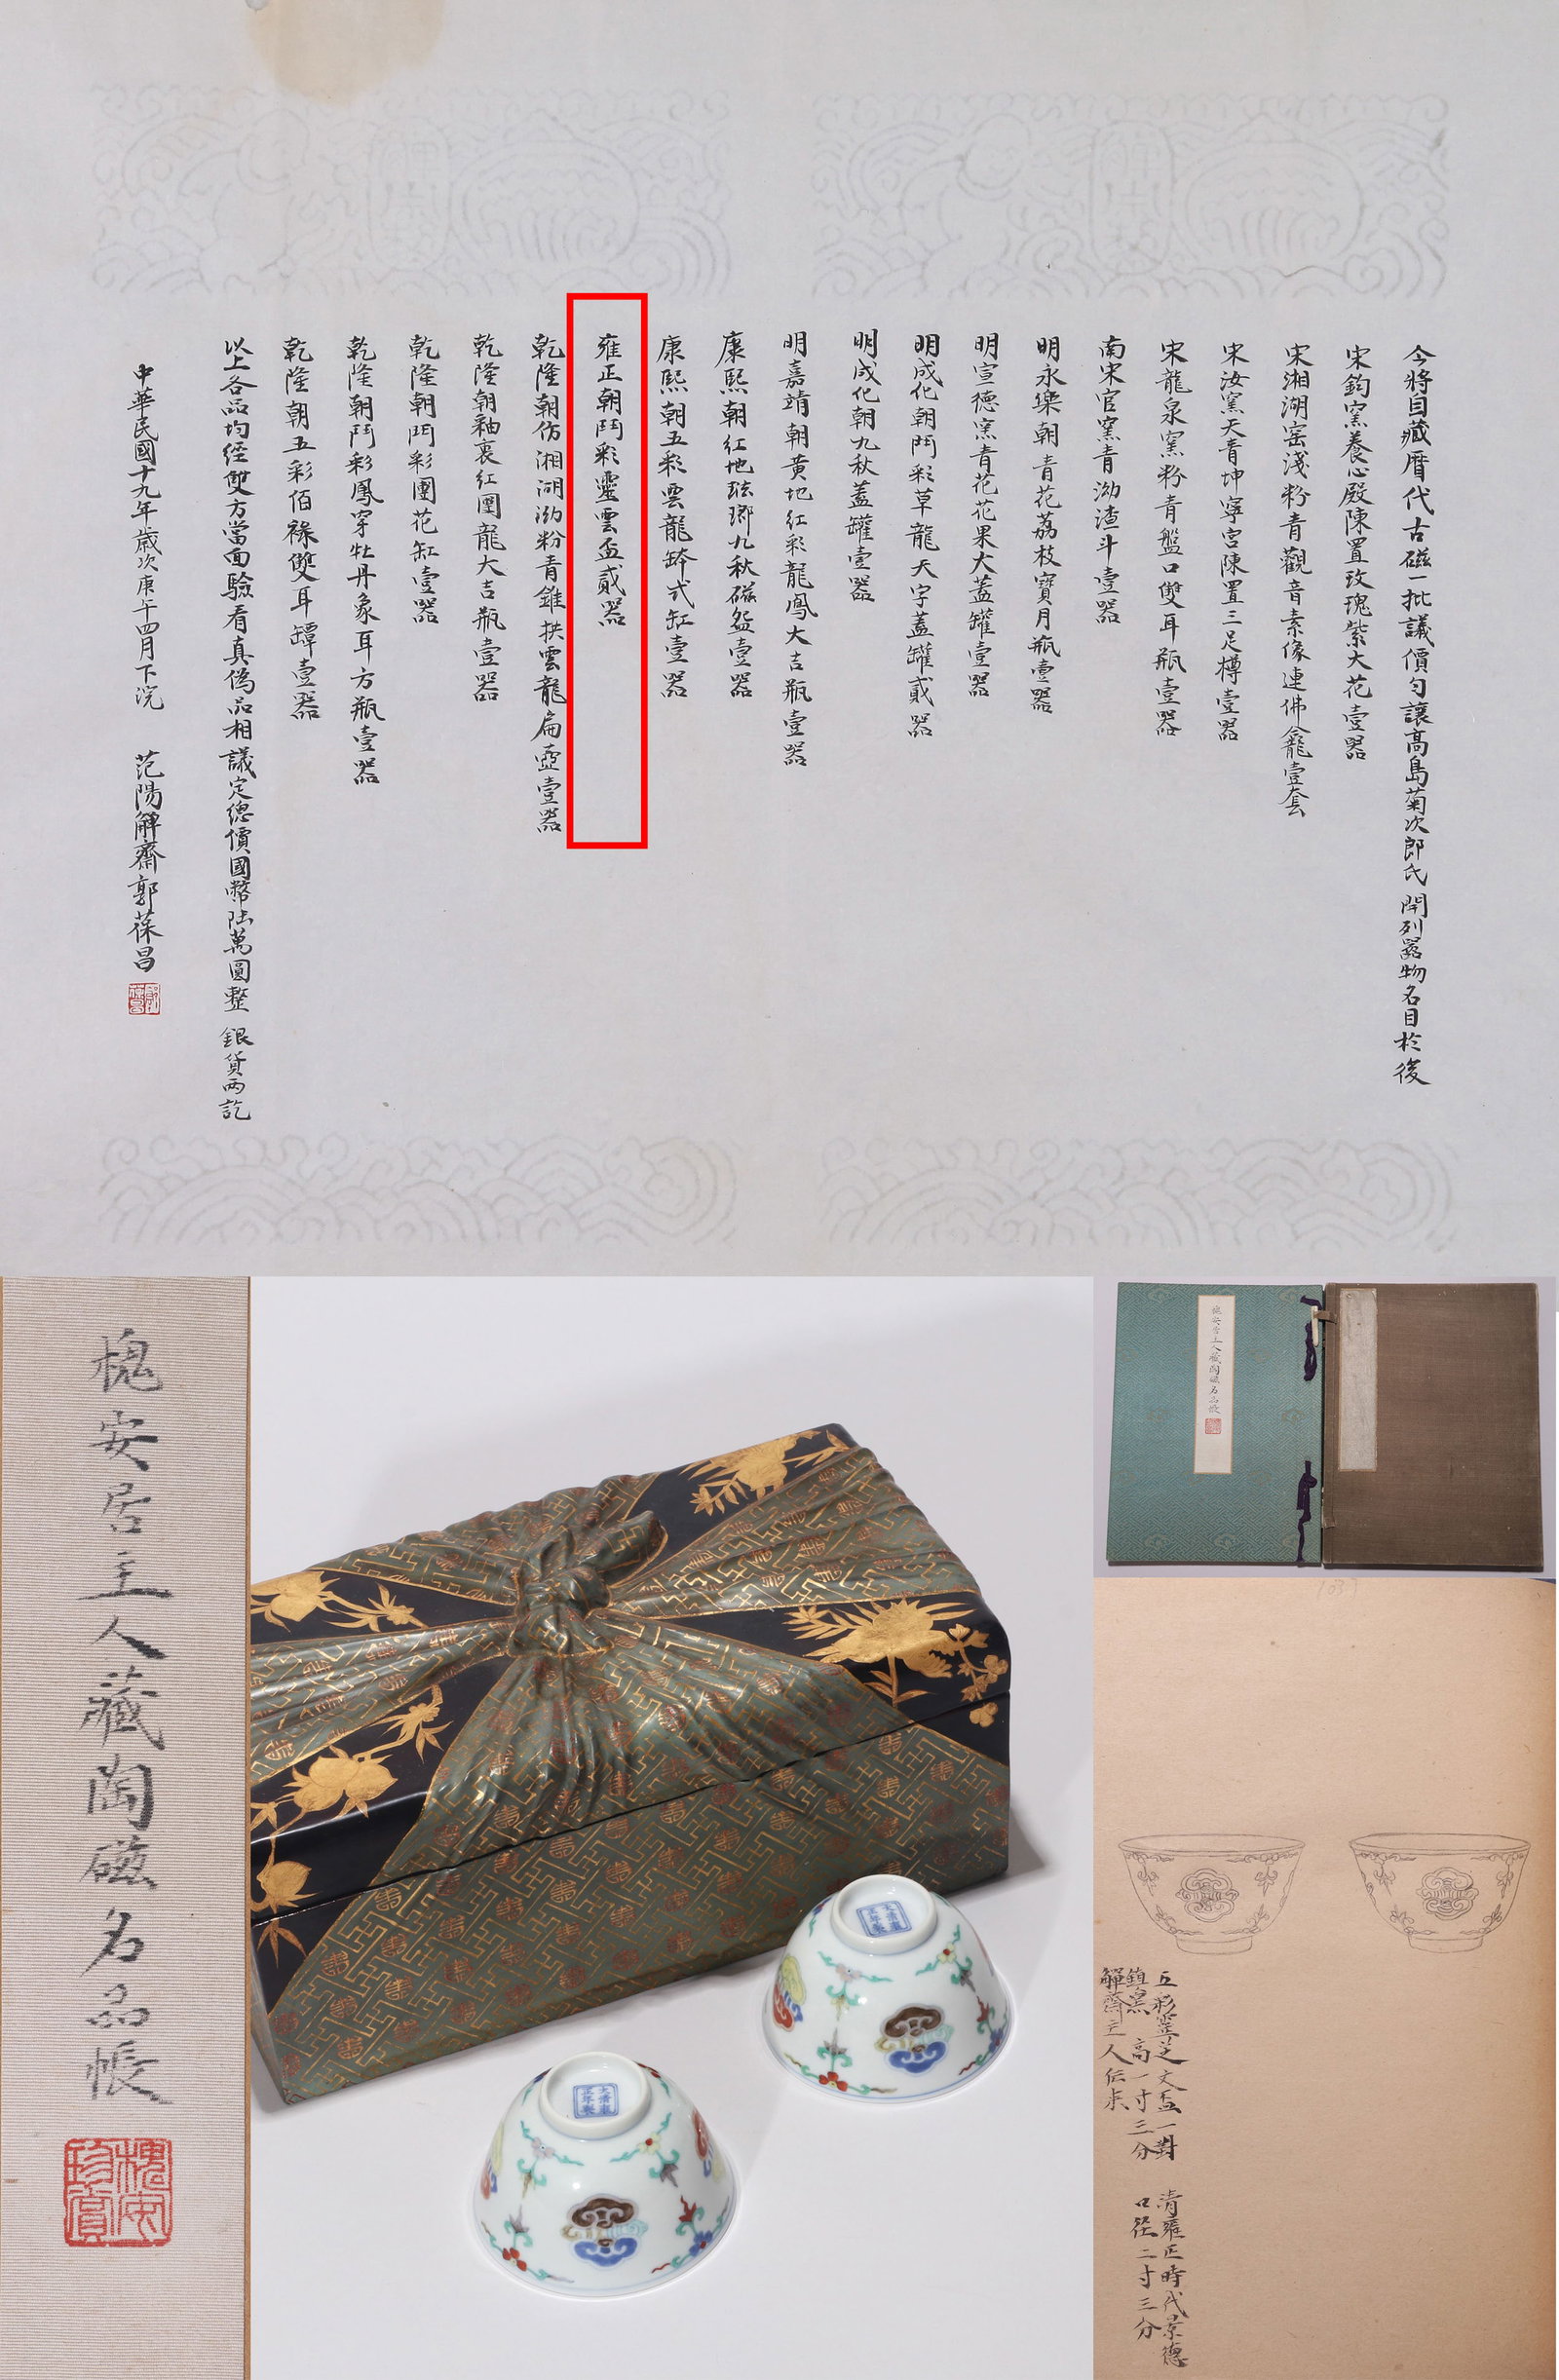 今將自藏曆代古磁一批議價勻讓高島菊次郎氏開列器物名目於後
宋鈞窯養心殿陳置玫瑰紫大花壹器
宋湘湖窑淺粉青觀音素像連佛龕壹套
宋汝窯天青坤寧宮陳置三足樽壹器
宋龍泉窯粉青盤口雙耳瓶壹器
南宋官窯青泑渣斗壹器
明永樂朝青花荔枝寶月瓶壹器
明宣德窯青花花果大蓋罐壹器
明成化朝鬥彩草龍天字蓋罐貳器
明成化朝九秋蓋罐壹器
明嘉靖朝黄地红彩龍鳳大吉瓶壹器
康熙朝红地琺瑯九秋磁盌壹器
康熙朝五彩雲龍缽式缸壹器
雍正朝鬥彩靈雲盃貳器
乾隆朝仿湘湖泑粉青錐拱雲龍扁壺壹器
乾隆朝釉裏红團龍大吉瓶壹器
乾隆朝鬥彩團花缸壹器
乾隆朝鬥彩鳳穿牡丹象耳方瓶壹器
乾隆朝五彩佰祿雙耳罈壹器
以上各品均经雙方當面驗看真偽品相議定總價國幣陆萬圓整 銀貨兩訖
中華民國十九年歲次庚午四月下浣 范陽觶齋郭葆昌
槐安居主人藏陶磁名品帳
槐安珍賞
槐安居主人藏陶磁名品帳
大清雍正年製
大清雍正年製
五彩霊芝文盃一對 清雍正時代景德
鎮窯 高一寸三分 口径二寸三分
觶齋主人伝来